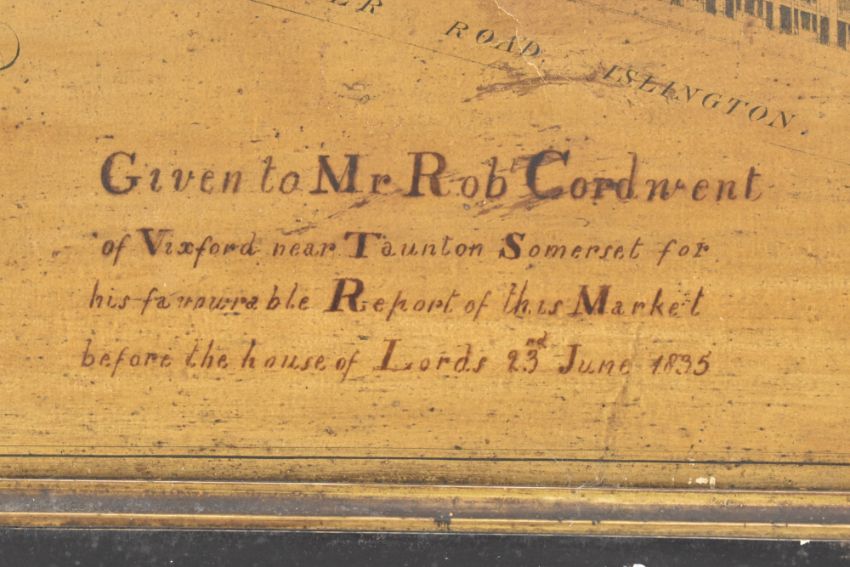 ER ROAD. ISLINGTON.
Given to Mr Rob Cordwent
of Vixford near Taunton Somerset for
his favourable Report of this Market
before the house of Lords 23rd June 1835